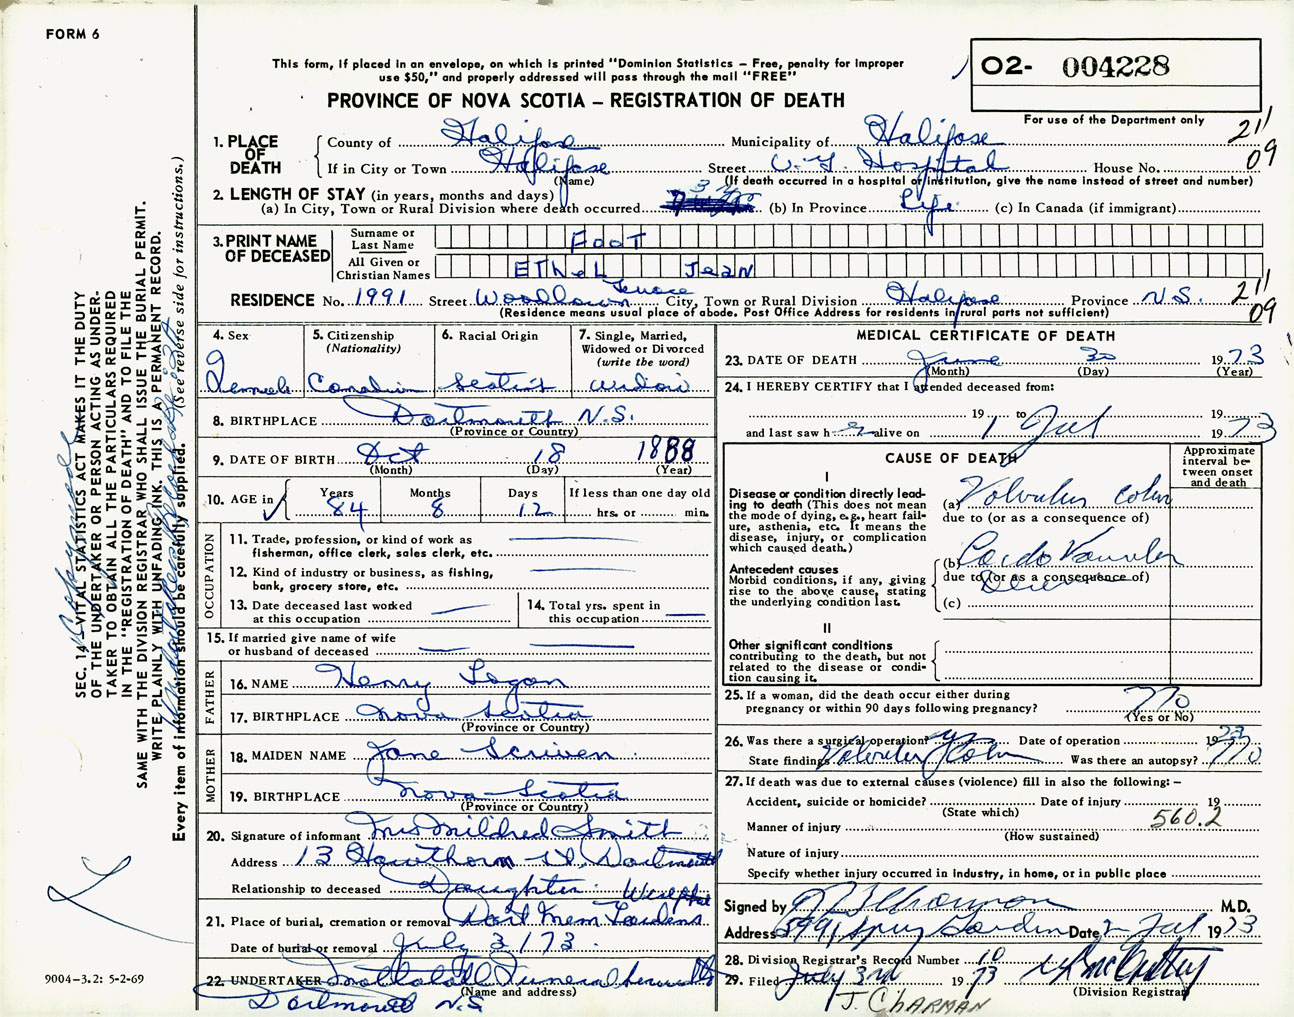 FORM 6
This form, if placed in an envelope, on which is printed "Dominion Statistics – Free, penalty for improper
use $50," and properly addressed will pass through the mail "FREE"
PROVINCE OF NOVA SCOTIA – REGISTRATION OF DEATH
O2- 004228
For use of the Department only
211
09
1. PLACE OF DEATH
County of Halifax Municipality of Halifax
If in City or Town Halifax Street V.G. Hospital House No.
(Name) (If death occurred in a hospital or institution, give the name instead of street and number)
2. LENGTH OF STAY (in years, months and days)
(a) In City, Town or Rural Division where death occurred (b) In Province Life (c) In Canada (if immigrant)
3. PRINT NAME OF DECEASED
Surname or Last Name FOOT
All Given or Christian Names EThEL JEAN
RESIDENCE No. 1991 Street Woodlawn Terrace City, Town or Rural Division Halifax Province N.S.
211
09
(Residence means usual place of abode. Post Office Address for residents in rural parts not sufficient)
4. Sex Female
5. Citizenship (Nationality) Canadian
6. Racial Origin
7. Single, Married, Widowed or Divorced (write the word) Widow
8. BIRTHPLACE Dartmouth N.S.
(Province or Country)
9. DATE OF BIRTH Oct 18 1888
(Month) (Day) (Year)
10. AGE in Years 84 Months 8 Days 12 If less than one day old hrs. or min.
OCCUPATION
11. Trade, profession, or kind of work as
fisherman, office clerk, sales clerk, etc.
12. Kind of industry or business, as fishing,
bank, grocery store, etc.
13. Date deceased last worked
at this occupation
14. Total yrs. spent in
this occupation
15. If married give name of wife
or husband of deceased
FATHER
16. NAME Henry Logan
17. BIRTHPLACE Nova Scotia
(Province or Country)
MOTHER
18. MAIDEN NAME Jane Scriven
19. BIRTHPLACE Nova Scotia
(Province or Country)
20. Signature of informant Mrs Mildred Smith
Address 13 Hawthorn St. Dartmouth
Relationship to deceased Daughter Westphal
21. Place of burial, cremation or removal Dart Mem. Gardens
Date of burial or removal July 3/73.
22. UNDERTAKER Funeral
(Name and address)
Dartmouth N.S.
MEDICAL CERTIFICATE OF DEATH
23. DATE OF DEATH June 30 1973
(Month) (Day) (Year)
24. I HEREBY CERTIFY that I attended deceased from:
19 to 19
and last saw her alive on 1 Jul 1973
CAUSE OF DEATH
Approximate interval between onset and death
I
Disease or condition directly lead-
ing to death (This does not mean
the mode of dying, e.g., heart fail-
ure, asthenia, etc. It means the
disease, injury, or complication
which caused death.)
(a) Volvulus colon
due to (or as a consequence of)
Antecedent causes
Morbid conditions, if any, giving
rise to the above cause, stating
the underlying condition last.
(b) Cardo Vascular
due to (or as a consequence of)
(c)
II
Other significant conditions
contributing to the death, but not
related to the disease or condi-
tion causing it.
25. If a woman, did the death occur either during
pregnancy or within 90 days following pregnancy? No
(Yes or No)
26. Was there a surgical operation? yes Date of operation 1973
State findings Volvulus Colon Was there an autopsy? No
27. If death was due to external causes (violence) fill in also the following: –
Accident, suicide or homicide? Date of injury 19
(State which)
Manner of injury 560.2
(How sustained)
Nature of injury
Specify whether injury occurred in industry, in home, or in public place
Signed by M.D.
Address 5991 Spring Garden Date 2 Jul 1973
28. Division Registrar's Record Number 10
29. Filed July 3rd 1973
(Division Registrar)
J. CHARMAN
SEC. 14 VITAL STATISTICS ACT MAKES IT THE DUTY
OF THE UNDERTAKER OR PERSON ACTING AS UNDER-
TAKER TO OBTAIN ALL THE PARTICULARS REQUIRED
IN THE "REGISTRATION OF DEATH" AND TO FILE THE
SAME WITH THE DIVISION REGISTRAR WHO SHALL ISSUE THE BURIAL PERMIT.
WRITE PLAINLY WITH UNFADING INK. THIS IS A PERMANENT RECORD.
Every item of information should be carefully supplied. (See reverse side for instructions.)
9004–3.2: 5-2-69